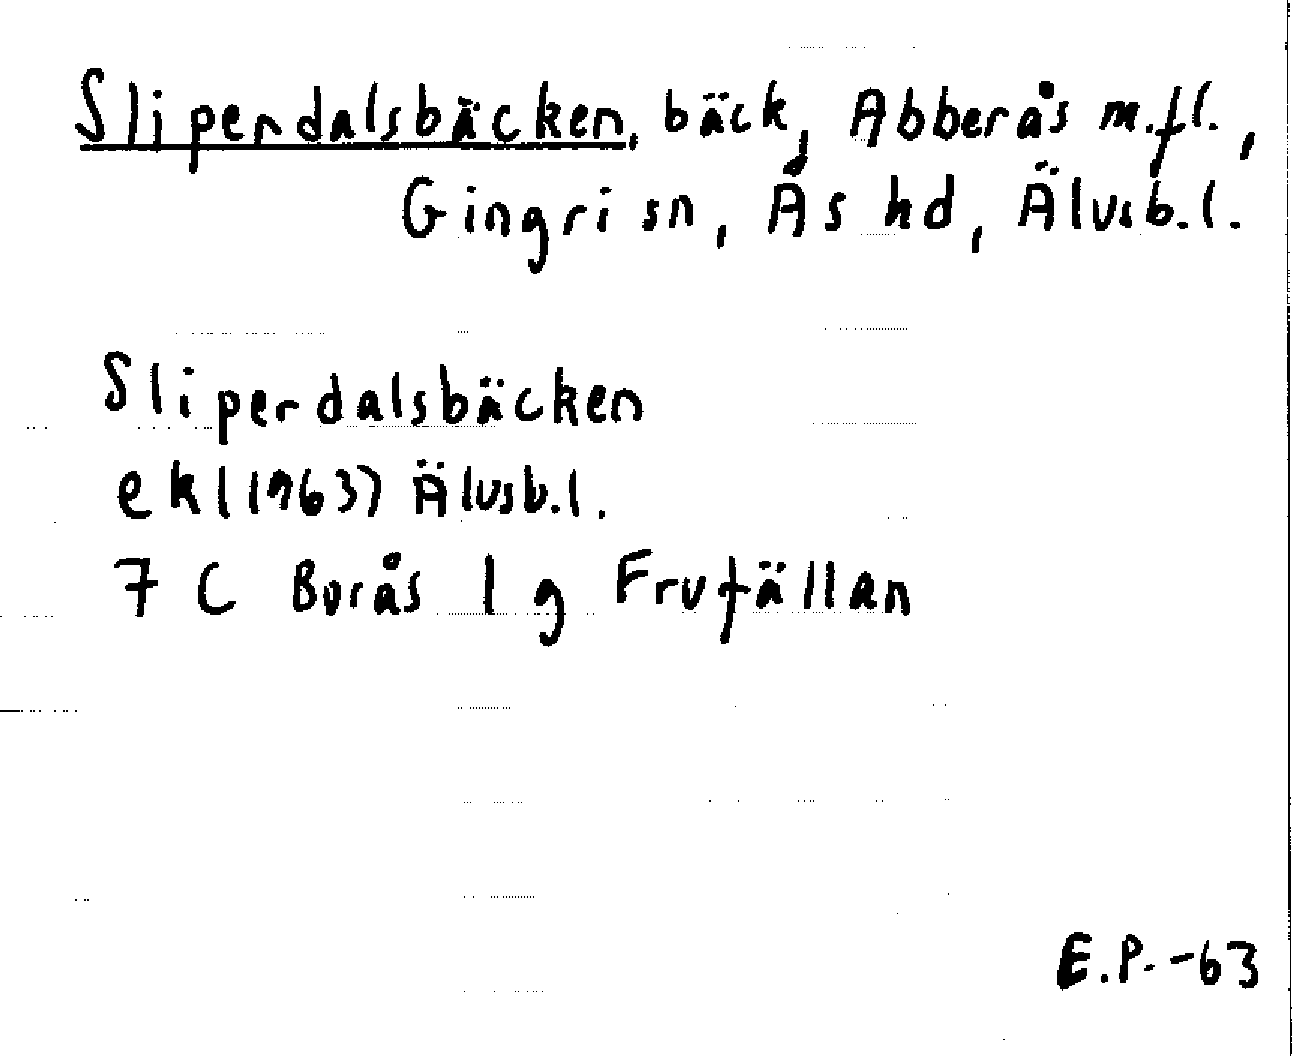 Slipendalsbäcken, bäck, Abberås m.fl.,
Gingri sn, Ås hd, Älvsb.l.
Sliperdalsbäcken
ekl (1963) Älvsb.l.
7 C Borås 1 g Frufällan
E.P.-63